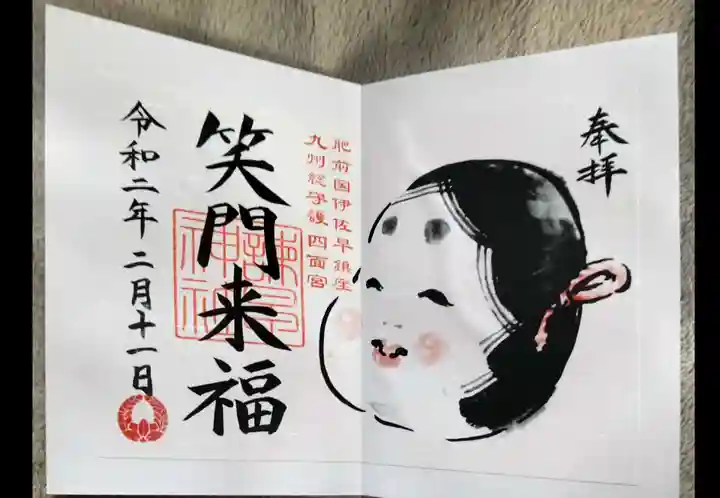 奉拝
肥前国伊佐早鎮座
九州総守護四面宮
笑門来福
諫早神社
令和二年二月十一日